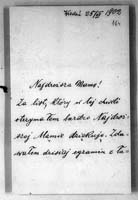 Wiedeń 25/III 1902
Najdroższa Mamo!
Za list, który w tej chwili
otrzymałem bardzo Najdroż-
szej Mamie dziękuję. Zda-
wałem dzisiaj egzamin z